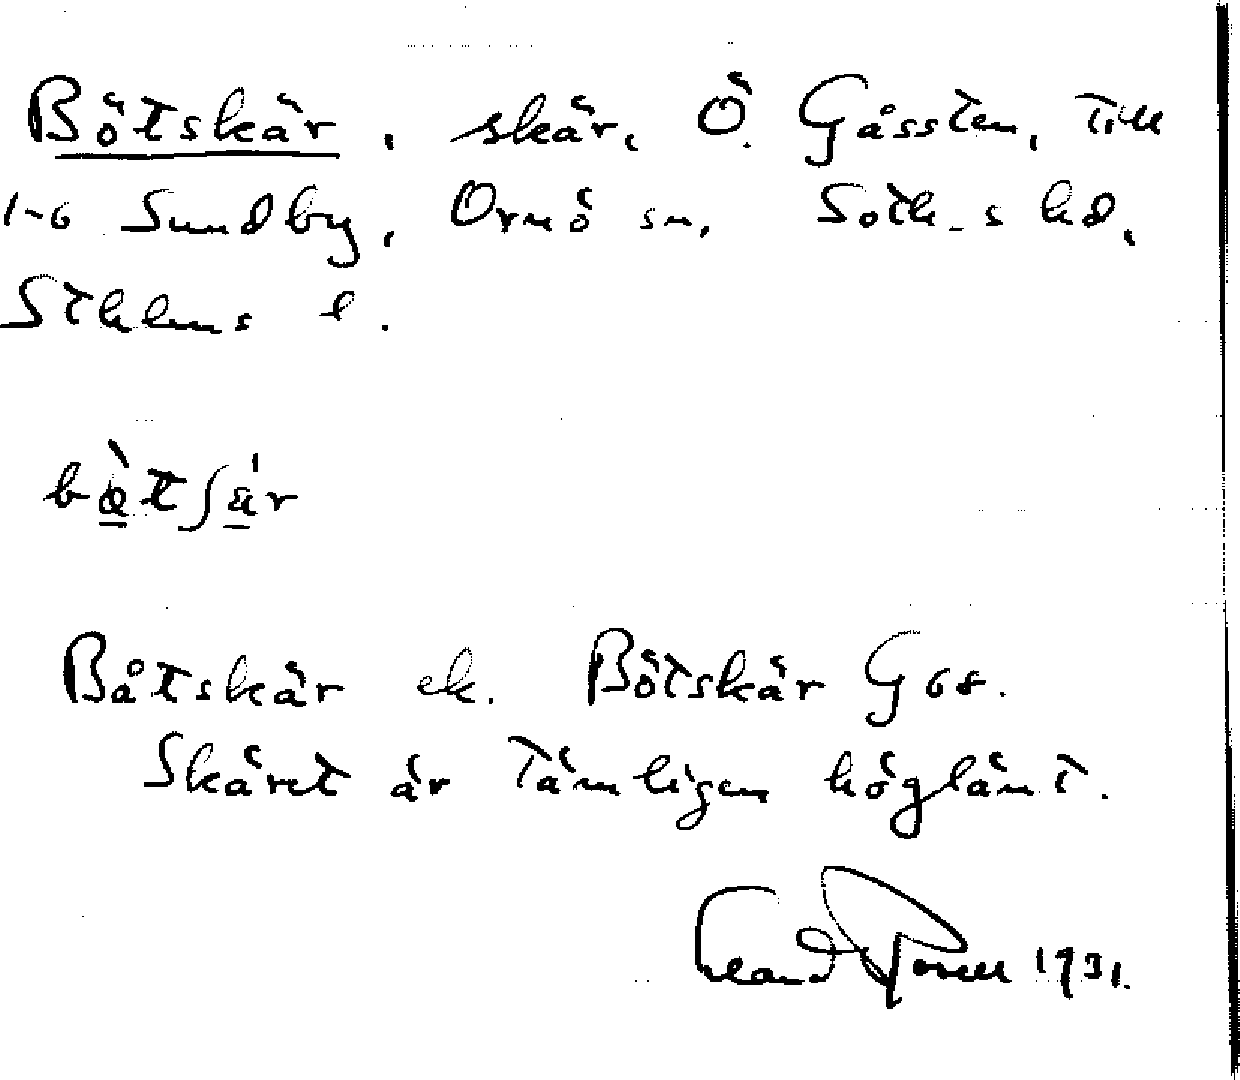 Bötskär, skär, Ö. Gåssten, till
1-6 Sundby, Ornö sn, Soth-s hd,
Sthlms l.
Båtskär ek. Bötskär G68.
Skäret är tämligen höglänt.
1931.